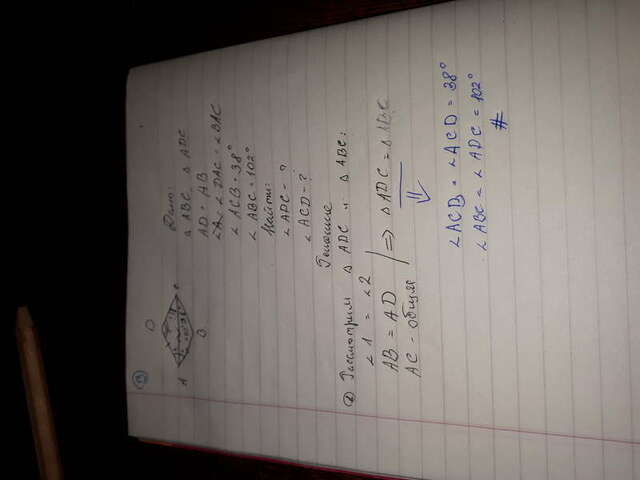 D
A
C
B
Дано:
△ ABC, △ ADC
AD = AB
∠ DAC = ∠ BAC
∠ ACB = 38°
∠ ABC = 102°
Найти:
∠ ADC - ?
∠ ACD - ?
Решение
Рассмотрим △ ADC и △ ABC:
∠ 1 = ∠ 2
AB = AD
AC - общая
=> △ ADC = △ ABC
∠ACB = ∠ACD = 38°
∠ ABC = ∠ ADC = 102°
#